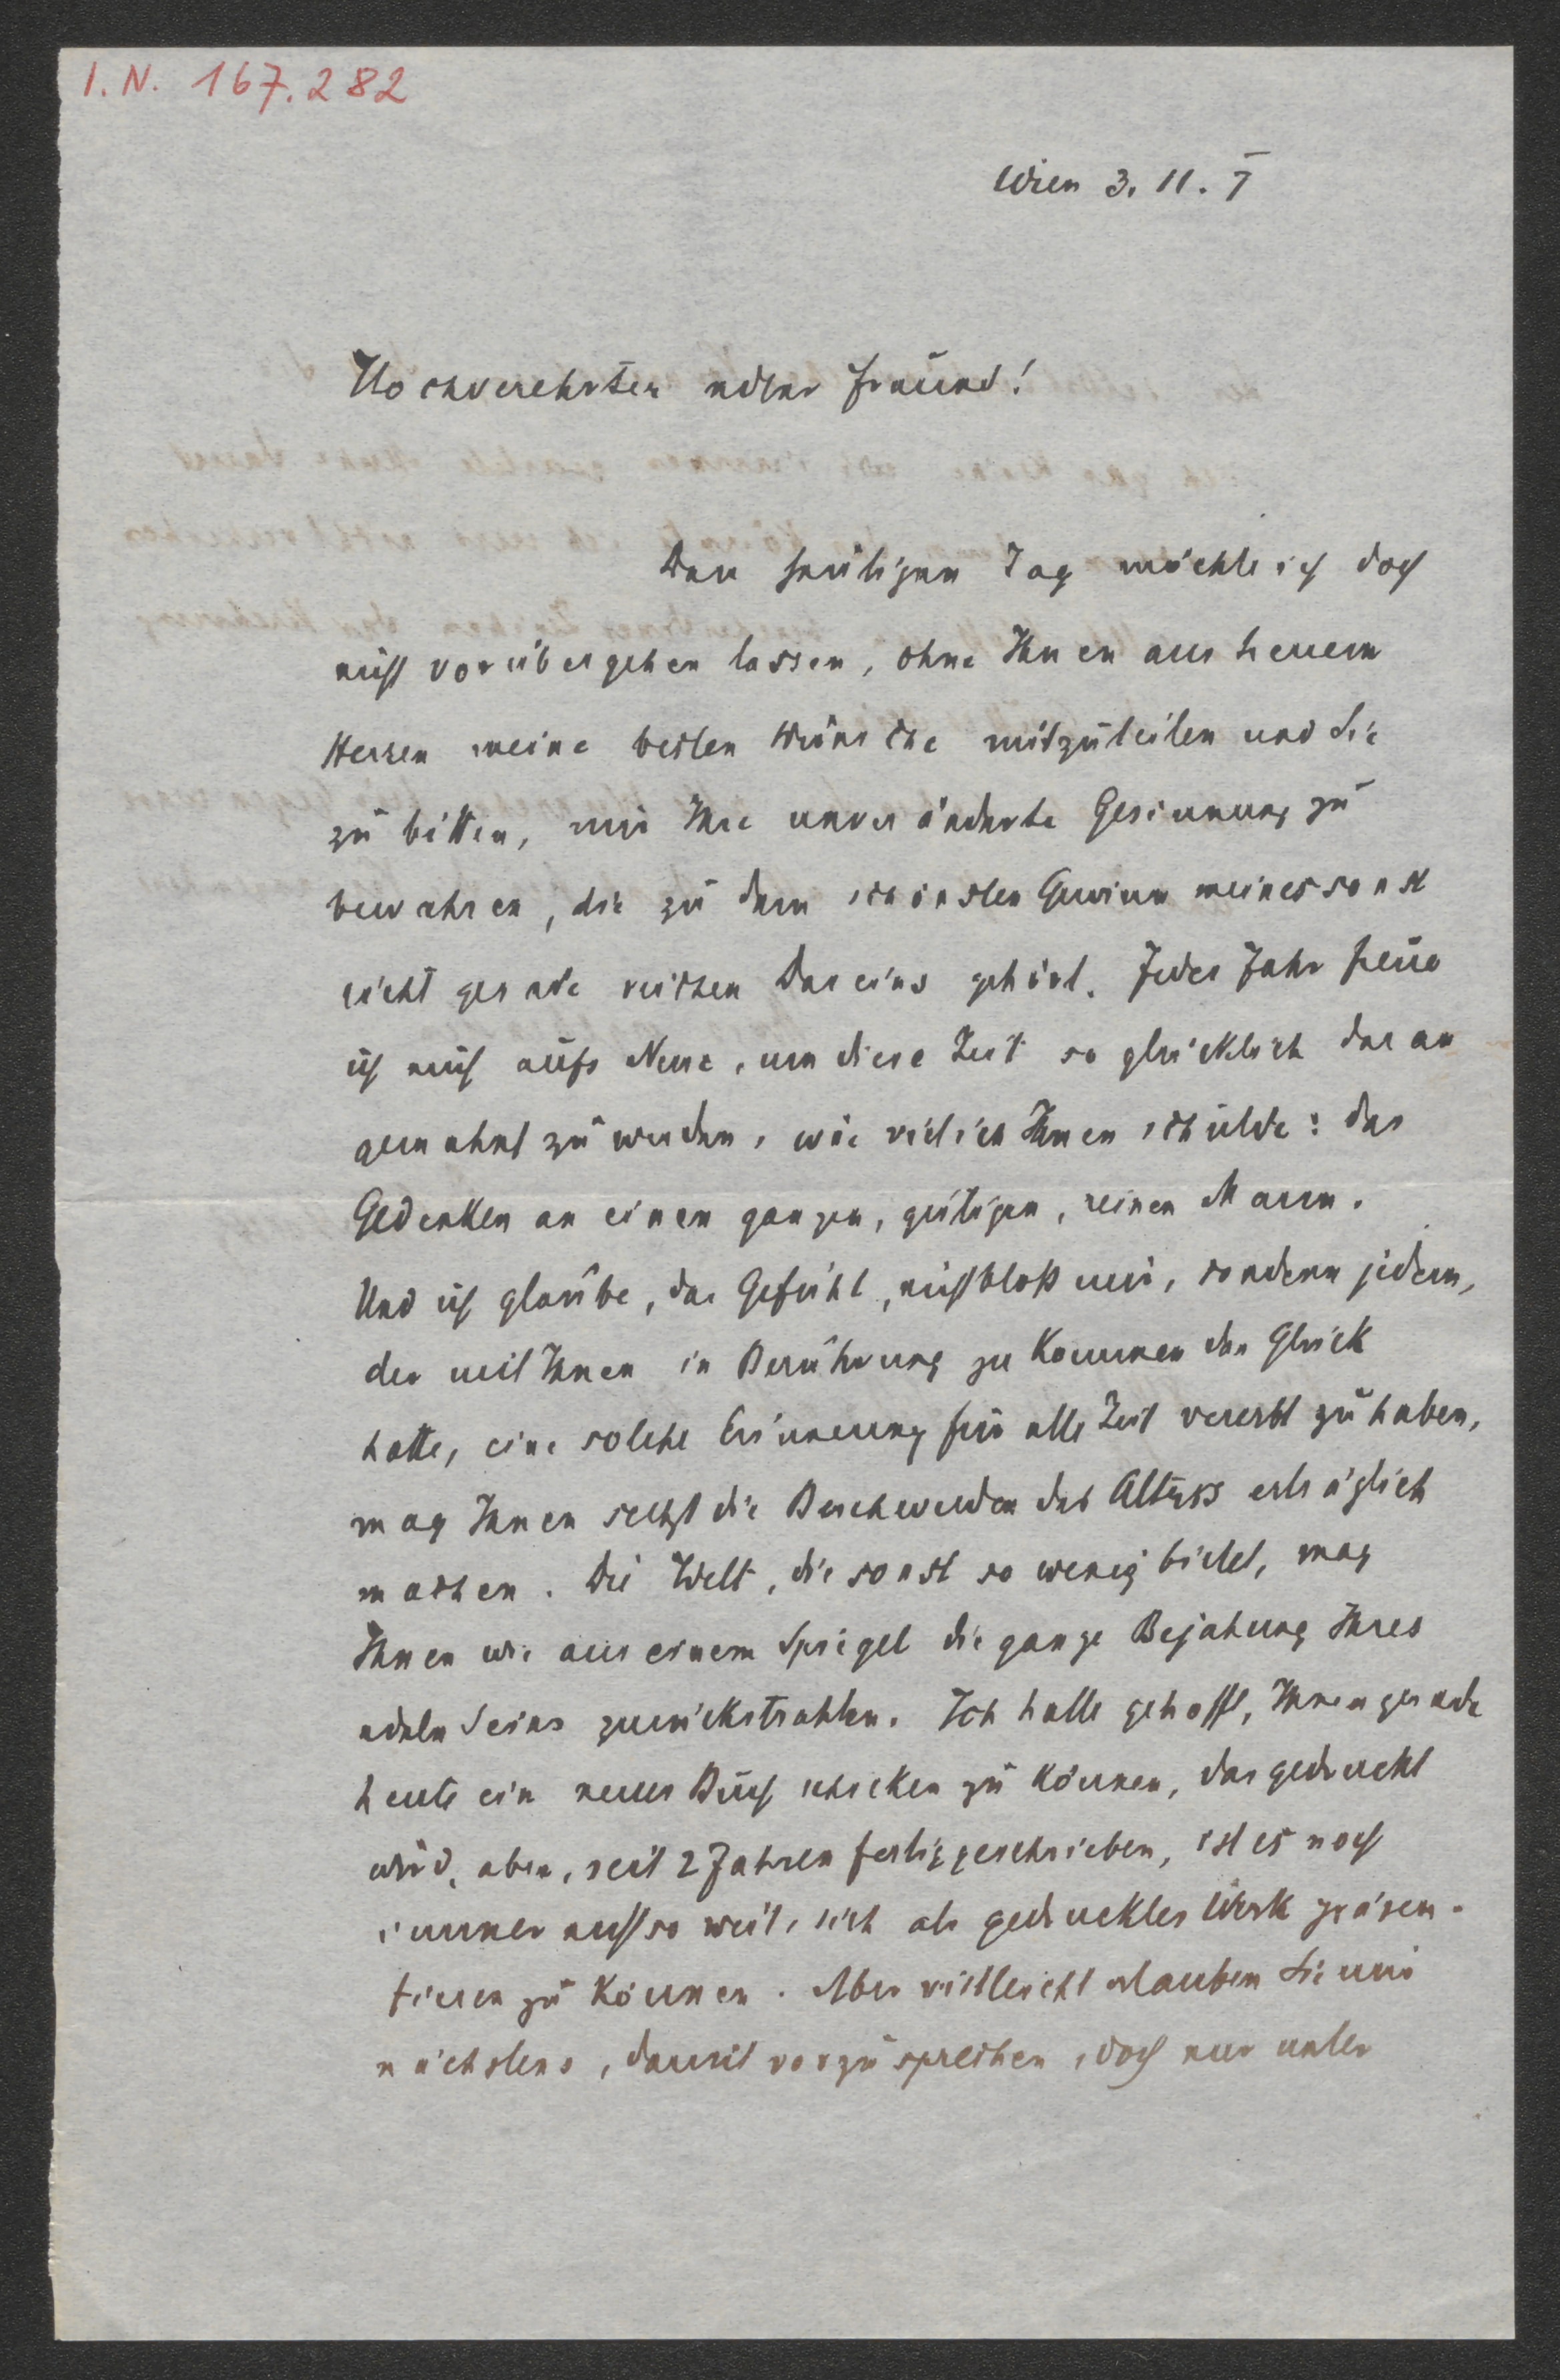 I. N. 167.282
Wien 3. 11. I
Hochverehrter edler Freund!
Den heutigen Tag möchte ich doch
nicht vorübergehen lassen, ohne Ihnen aus treuem
Herzen meine besten Wünsche mitzuteilen und Sie
zu bitten, mir Ihre unveränderte Gesinnung zu
bewahren, die zu dem schönsten Gewinn meines sonst
nicht gerade reichen Daseins gehört. Jedes Jahr freue
ich mich aufs Neue, um diese Zeit so glücklich daran
gemahnt zu werden, wie viel ich Ihnen schulde: das
Gedenken an einen ganzen, gütigen, reinen Mann.
Und ich glaube, das Gefühl, nicht bloß mir, sondern jedem,
der mit Ihnen in Berührung zu kommen das Glück
hatte, eine solche Erinnerung für alle Zeit vererbt zu haben,
mag Ihnen selbst die Beschwerden des Alters erträglich
machen. Die Welt, die sonst so wenig bietet, mag
Ihnen wie aus einem Spiegel die ganze Bejahung Ihres
edeln Seins zurückstrahlen. Ich hatte gehofft, Ihnen gerade
heute ein neues Buch schicken zu können, das gedruckt
wird, aber, seit 2 Jahren fertiggeschrieben, ist es noch
immer nicht so weit, sich als gedrucktes Werk präsen-
tieren zu können. Aber vielleicht erlauben Sie mir
nächstens, damit vorzusprechen, doch nur unter